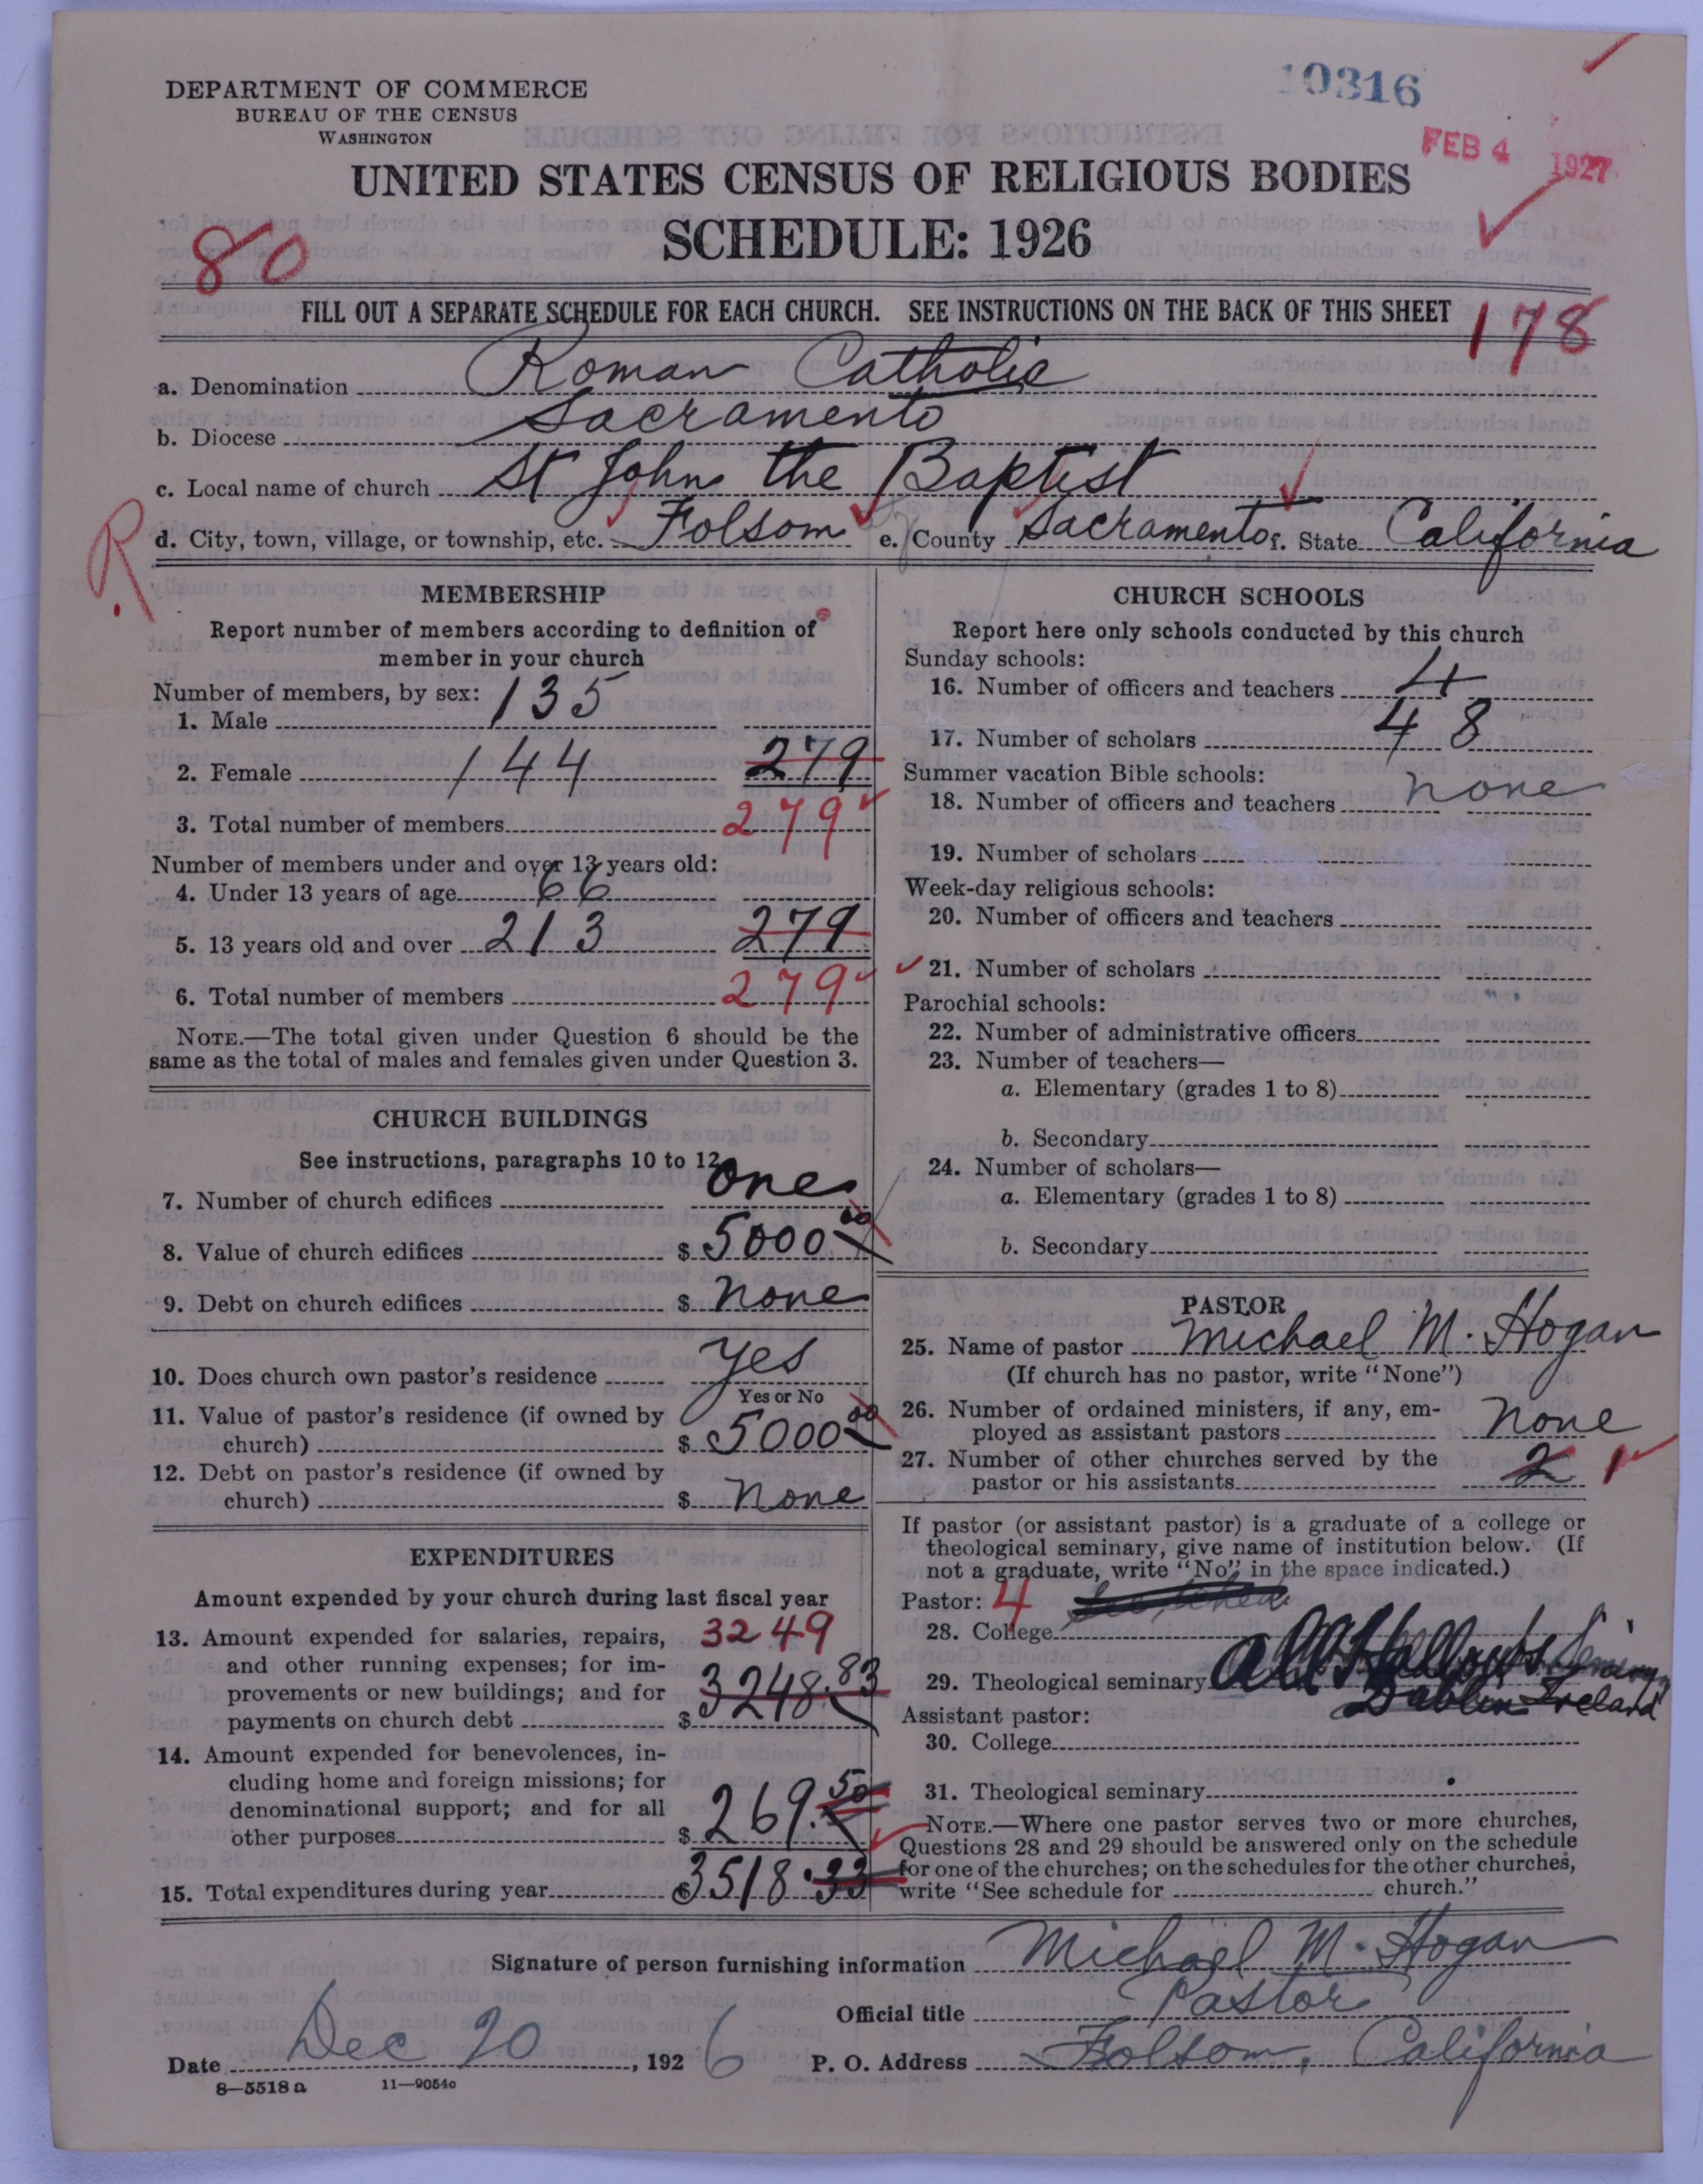 10316
DEPARTMENT OF COMMERCE
BUREAU OF THE CENSUS
WASHINGTON
FEB 4 1927
UNITED STATES CENSUS OF RELIGIOUS BODIES
SCHEDULE: 1926
80
FILL OUT A SEPARATE SCHEDULE FOR EACH CHURCH. SEE INSTRUCTIONS ON THE BACK OF THIS SHEET
178
a. Denomination Roman Catholic
b. Diocese Sacramento
c. Local name of church St John the Baptist
R
d. City, town, village, or township, etc. Folsom e. County Sacramento f. State California
MEMBERSHIP
Report number of members according to definition of
member in your church
Number of members, by sex:
1. Male 135
2. Female 144 279
3. Total number of members 279
Number of members under and over 13 years old:
4. Under 13 years of age 66
5. 13 years old and over 213 279
6. Total number of members 279
NOTE.—The total given under Question 6 should be the
same as the total of males and females given under Question 3.
CHURCH BUILDINGS
See instructions, paragraphs 10 to 12
7. Number of church edifices one
8. Value of church edifices $ 5000 00
9. Debt on church edifices $ none
10. Does church own pastor's residence yes
Yes or No
11. Value of pastor's residence (if owned by
church) $ 5000 00
12. Debt on pastor's residence (if owned by
church) $ none
EXPENDITURES
Amount expended by your church during last fiscal year
13. Amount expended for salaries, repairs, 3249
and other running expenses; for im-
provements or new buildings; and for 3248.83
payments on church debt $
14. Amount expended for benevolences, in-
cluding home and foreign missions; for
denominational support; and for all
other purposes $ 269.50
15. Total expenditures during year $ 3518.33
CHURCH SCHOOLS
Report here only schools conducted by this church
Sunday schools:
16. Number of officers and teachers 4
17. Number of scholars 48
Summer vacation Bible schools:
18. Number of officers and teachers none
19. Number of scholars
Week-day religious schools:
20. Number of officers and teachers
21. Number of scholars
Parochial schools:
22. Number of administrative officers
23. Number of teachers—
a. Elementary (grades 1 to 8)
b. Secondary
24. Number of scholars—
a. Elementary (grades 1 to 8)
b. Secondary
PASTOR
25. Name of pastor Michael M. Hogan
(If church has no pastor, write "None")
26. Number of ordained ministers, if any, em-
ployed as assistant pastors none
27. Number of other churches served by the
pastor or his assistants 2 1
If pastor (or assistant pastor) is a graduate of a college or
theological seminary, give name of institution below. (If
not a graduate, write "No" in the space indicated.)
Pastor: 4
28. College
29. Theological seminary All Hallows Seminary
Dublin Ireland
Assistant pastor:
30. College
31. Theological seminary
NOTE.—Where one pastor serves two or more churches,
Questions 28 and 29 should be answered only on the schedule
for one of the churches; on the schedules for the other churches,
write "See schedule for church."
Signature of person furnishing information Michael M. Hogan
Official title Pastor
Date Dec 20, 1926 P. O. Address Folsom, California
8—5518 a 11—9054c